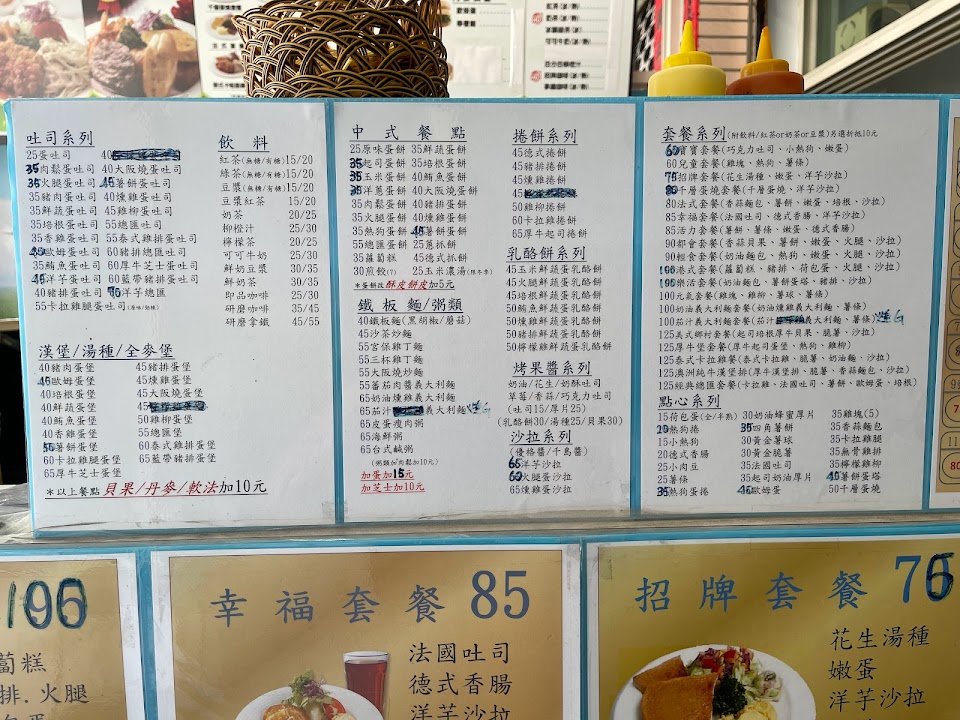 吐司系列
25蛋吐司 40
35肉鬆蛋吐司 40大阪燒蛋吐司
35火腿蛋吐司 45薯餅蛋吐司
35豬肉蛋吐司 40燻雞蛋吐司
35鮮蔬蛋吐司 45雞柳蛋吐司
35培根蛋吐司 55總匯吐司
35香雞蛋吐司 55泰式雞排蛋吐司
40歐姆蛋吐司 60豬排總匯吐司
35鮪魚蛋吐司 60厚牛芝士蛋吐司
40洋芋蛋吐司 60藍帶豬排蛋吐司
40豬排蛋吐司 70洋芋總匯
55卡拉雞腿蛋吐司(原味/勁辣)
飲料
紅茶(無糖/有糖)15/20
綠茶(無糖/有糖)15/20
豆漿(無糖/有糖)15/20
豆漿紅茶 15/20
奶茶 20/25
柳橙汁 25/30
檸檬茶 20/25
可可牛奶 25/30
鮮奶豆漿 30/35
鮮奶茶 30/35
即品咖啡 25/30
研磨咖啡 35/45
研磨拿鐵 45/55
漢堡/湯種/全麥堡
40豬肉蛋堡 45豬排蛋堡
45歐姆蛋堡 45燻雞蛋堡
40培根蛋堡 45大阪燒蛋堡
40鮮蔬蛋堡 45
40鮪魚蛋堡 50雞柳蛋堡
40香雞蛋堡 55總匯堡
50薯餅蛋堡 60泰式雞排蛋堡
60卡拉雞腿蛋堡 65藍帶豬排蛋堡
65厚牛芝士蛋堡
*以上餐點貝果/丹麥/軟法加10元
中式餐點
25原味蛋餅 35鮮蔬蛋餅
35起司蛋餅 35培根蛋餅
35玉米蛋餅 40鮪魚蛋餅
35洋蔥蛋餅 40大阪燒蛋餅
35肉鬆蛋餅 40豬排蛋餅
35火腿蛋餅 40燻雞蛋餅
35熱狗蛋餅 40薯餅蛋餅
55總匯蛋餅 25蔥抓餅
35蘿蔔糕 45德式抓餅
30煎餃(7) 25玉米濃湯(限冬季)
*蛋餅改酥皮餅皮加5元
鐵板麵/粥類
40鐵板麵(黑胡椒/蘑菇)
45沙茶炒麵
55宮保雞丁麵
55三杯雞丁麵
55大阪燒炒麵
55蕃茄肉醬義大利麵
65奶油燻雞義大利麵
65茄汁 義大利麵
65皮蛋瘦肉粥
65海鮮粥
65台式鹹粥
(粥類加肉鬆加10元)
加蛋加15元
加芝士加10元
捲餅系列
45德式捲餅
45豬排捲餅
45燻雞捲餅
45
50雞柳捲餅
60卡拉雞捲餅
65厚牛起司捲餅
乳酪餅系列
45玉米鮮蔬蛋乳酪餅
45火腿鮮蔬蛋乳酪餅
45培根鮮蔬蛋乳酪餅
50鮪魚鮮蔬蛋乳酪餅
50燻雞鮮蔬蛋乳酪餅
50豬排鮮蔬蛋乳酪餅
50檸檬雞鮮蔬蛋乳酪餅
烤果醬系列
奶油/花生/奶酥吐司
草莓/香蒜/巧克力吐司
(吐司15/厚片25)
(乳酪餅30/湯種25/貝果30)
沙拉系列
(優格醬/千島醬)
洋芋沙拉
60火腿蛋沙拉
65燻雞蛋沙拉
套餐系列(附飲料/紅茶or奶茶or豆漿)另選折抵10元
60寶寶套餐(巧克力吐司、小熱狗、嫩蛋)
60兒童套餐(雞塊、熱狗、薯條)
招牌套餐(花生湯種、嫩蛋、洋芋沙拉)
千層蛋燒套餐(千層蛋燒、洋芋沙拉)
80法式套餐(香蒜麵包、薯餅、嫩蛋、培根、沙拉)
85幸福套餐(法國吐司、德式香腸、洋芋沙拉)
85活力套餐(薯餅、薯條、嫩蛋、德式香腸)
90都會套餐(香蒜貝果、薯餅、嫩蛋、火腿、沙拉)
90輕食套餐(奶油麵包、熱狗、嫩蛋、火腿、沙拉)
100港式套餐(蘿蔔糕、豬排、荷包蛋、火腿、沙拉)
100樂活套餐(奶油麵包、薯餅蛋塔、豬排、沙拉)
100元氣套餐(雞塊、雞柳、薯球、薯條)
100奶油義大利麵套餐(奶油燻雞義大利麵、薯條)
100茄汁義大利麵套餐(茄汁 義大利麵、薯條)
125美式鄉村套餐(起司培根厚牛貝果、脆薯、沙拉)
125厚牛堡套餐(厚牛起司蛋堡、熱狗、雞柳)
125泰式卡拉雞套餐(泰式卡拉雞、脆薯、奶油麵、沙拉)
125澳洲純牛漢堡排(厚牛漢堡排、脆薯、香蒜麵包、沙拉)
125經典總匯套餐(卡拉雞、法國吐司、薯餅、歐姆蛋、培根)
點心系列
15荷包蛋(全/半熟) 30奶油蜂蜜厚片 35雞塊(5)
20熱狗捲 35四角薯餅 35香蒜麵包
15小熱狗 30黃金薯球 35卡拉雞腿
20德式香腸 30黃金脆薯 35無骨雞排
25小肉豆 35法國吐司 35檸檬雞柳
25薯條 35起司奶油厚片 40薯餅蛋塔
35熱狗蛋捲 40歐姆蛋 50千層蛋燒
蔔糕
排.火腿
幸福套餐 85
法國吐司
德式香腸
洋芋沙拉
招牌套餐 75
花生湯種
嫩蛋
洋芋沙拉